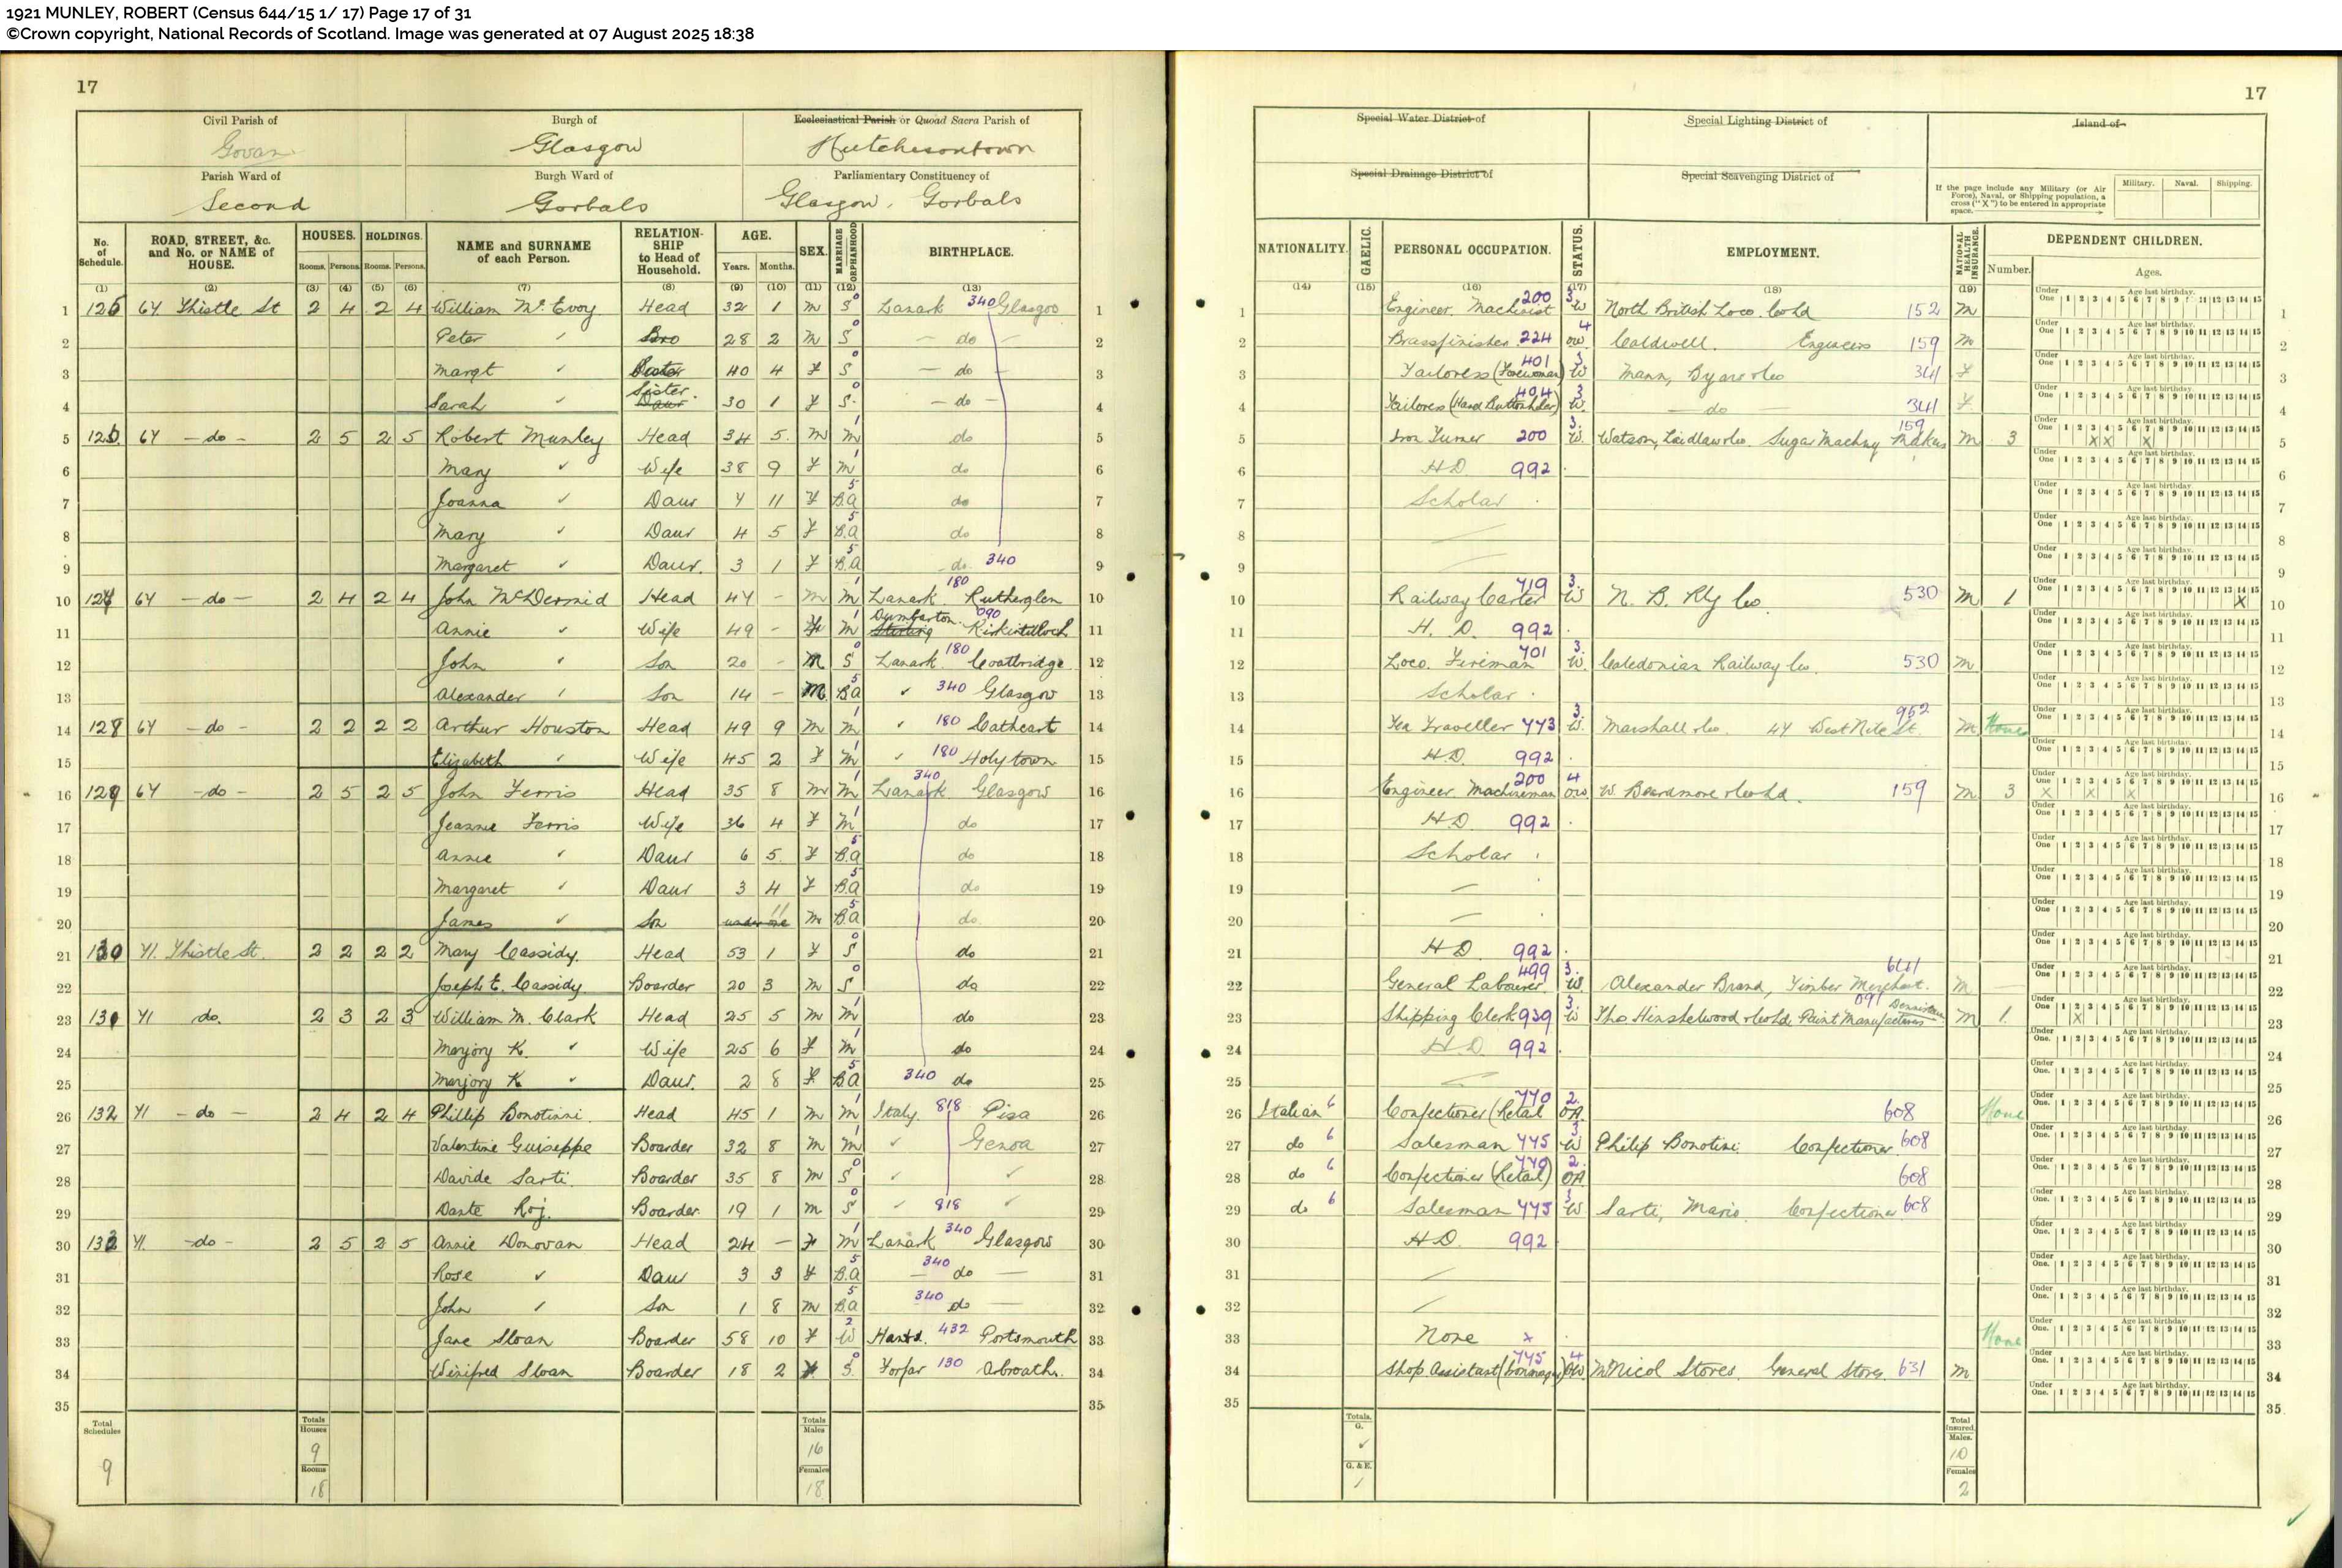 1921 MUNLEY, ROBERT (Census 644/15 1/ 17) Page 17 of 31
©Crown copyright, National Records of Scotland. Image was generated at 07 August 2025 18:38
17
17
Civil Parish of Govan Burgh of Glasgow Ecclesiastical Parish or Quoad Sacra Parish of Hutchesontown
Parish Ward of Second Burgh Ward of Gorbals Parliamentary Constituency of Glasgow, Gorbals
Special Water District of Special Lighting District of Island of
Special Drainage District of Special Scavenging District of
If the page include any Military (or Air Force), Naval, or Shipping population, a cross ("X") to be entered in appropriate space. Military. Naval. Shipping.
No. of Schedule. ROAD, STREET, &c. and No. or NAME of HOUSE. HOUSES. Rooms. Persons. HOLDINGS. Rooms. Persons. NAME and SURNAME of each Person. RELATIONSHIP to Head of Household. AGE. Years. Months. SEX. MARRIAGE ORPHANHOOD BIRTHPLACE.
NATIONALITY. GAELIC. PERSONAL OCCUPATION. STATUS. EMPLOYMENT. NATIONAL HEALTH INSURANCE. DEPENDENT CHILDREN. Number. Ages.
(1) (2) (3) (4) (5) (6) (7) (8) (9) (10) (11) (12) (13) (14) (15) (16) (17) (18) (19)
Under One 1 2 3 4 5 6 7 8 9 10 11 12 13 14 15 Age last birthday.
1 64 Thistle St 2 4 2 4 William McEvoy Head 32 1 M S 0 Lanark 340 Glasgow Engineer, Machinist 200 3 W North British Loco. Co Ld 152 M
2 Peter Bro 28 2 M S 0 do Brassfinisher 224 4 OW Caldwell. Engineers 159 M
3 Margt Sister 40 4 F S 0 do Tailoress (Forewoman) 401 3 W Mann, Byars & Co 341 F
4 Sarah Daur Sister 30 1 F S 0 do Tailoress 404 3 W do 341 F
5 64 do 2 5 2 5 Robert Munley Head 34 5 M M 1 do Iron Turner 200 3 W Watson, Laidlaw & Co. Sugar Machny Makers 159 M 3 X X X
6 Mary Wife 38 9 F M 1 do H.D 992
7 Joanna Daur 7 11 F B.A 5 do Scholar
8 Mary Daur 4 5 F B.A 5 do
9 Margaret Daur. 3 1 F B.A 5 do 340
10 64 do 2 4 2 4 John McDermid Head 47 - M M 1 Lanark 180 Rutherglen Railway Carter 719 3 W N. B. Rly Co. 530 M 1 X
11 Annie Wife 49 - F M 1 Stirling Dumbarton 090 Kirkintilloch H. D. 992
12 John Son 20 - M S 0 Lanark 180 Coatbridge Loco. Fireman 701 3 W Caledonian Railway Co. 530 M
13 Alexander Son 14 - M B.A 5 340 Glasgow Scholar
14 128 64 do 2 2 2 2 Arthur Houston Head 49 9 M M 1 180 Cathcart Tea Traveller 773 3 W Marshall & Co. 952 M None
15 Elizabeth Wife 45 2 F M 1 180 Holytown H.D. 992
16 129 64 do 2 5 2 5 John Ferris Head 35 8 M M 1 Lanark 340 Glasgow Engineer Machineman 200 4 OW W. Beardmore & Co Ld. 159 M 3 X X X
17 Jeannie Ferris Wife 36 4 F M 1 do H.D. 992
18 Annie Daur 6 5 F B.A 5 do Scholar
19 Margaret Daur 3 4 F B.A 5 do
20 James Son under one 11 M B.A 5 do
21 130 71 Thistle St. 2 2 2 2 Mary Cassidy Head 53 1 F S 0 do H.D 992
22 Joseph E. Cassidy Boarder 20 3 M S 0 do General Labourer 499 3 W Alexander Brand, Timber Merchant. 641 M
23 131 71 do. 2 3 2 3 William M. Clark Head 25 5 M M 1 do Shipping Clerk 939 3 W Tho Hinshelwood & Co Ld Paint Manufacturers 091 M 1 X
24 Marjory K. Wife 25 6 F M 1 do H.D. 992
25 Marjory K Daur. 2 8 F B.A 5 340 do
26 132 71 do 2 4 2 4 Phillip Bonotinni Head 45 1 M M 1 Italy. 818 Pisa Italian 6 Confectioner (Retail 770 2 OA 608 None
27 Valentine Guiseppe Boarder 32 8 M M 1 Genoa do 6 Salesman 775 3 W Philip Bonotini. Confectioner 608
28 Davide Sarti. Boarder 35 8 M S 0 do 6 Confectioner (Retail) 770 2 OA 608
29 Dante Roj. Boarder 19 1 M S 0 818 do 6 Salesman 775 3 W Sarti, Mario. Confectioner 608
30 133 71 do 2 5 2 5 Annie Donovan Head 24 - F M 1 Lanark 340 Glasgow H.D. 992
31 Rose Daur 3 3 F B.A 5 340 do
32 John Son 1 8 M B.A 5 340 do
33 Jane Sloan Boarder 58 10 F W 2 Hants. 432 Portsmouth None x None
34 Winifred Sloan Boarder 18 2 F S 0 Forfar 130 Abroath. Shop Assistant 775 4 OW McNicol Stores. General Stores 631 M
35
Total Schedules 9 Totals Houses 9 Rooms 18 Totals Males 16 Females 18
Totals. G. G. & E. Total Insured. Males. 10 Females 2